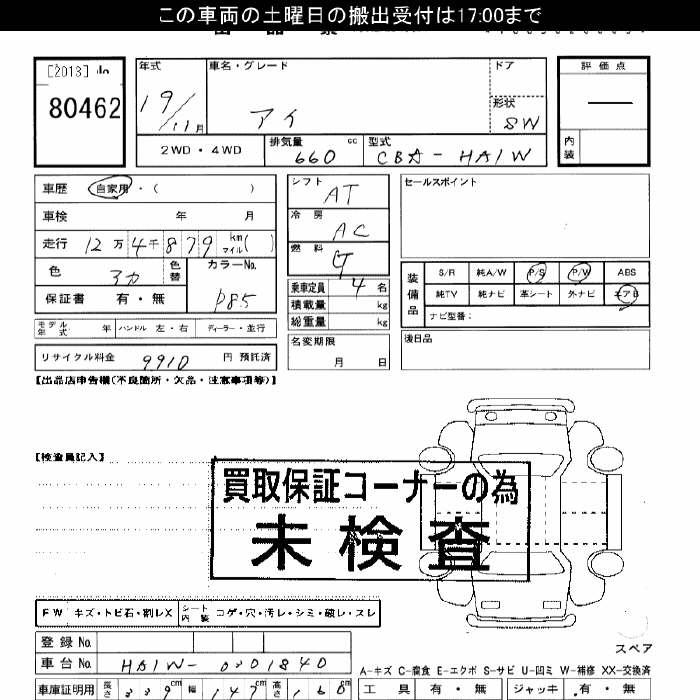 この車両の土曜日の搬出受付は17:00まで
[2013]
80462
年式
19/11月
車名・グレード
アイ
ドア
形状
SW
評価点
内装
2WD・4WD
排気量
660
cc
型式
CBA-HA1W
車歴
自家用・( )
車検 年 月
走行 12万4千879 km マイル( )
色
アカ
色替
カラーNo.
P85
保証書 有・無
シフト
AT
冷房
AC
燃料
G
乗車定員 4名
積載量 kg
総重量 kg
名変期限
月 日
セールスポイント
装備品
S/R 純A/W P/S P/W ABS
純TV 純ナビ 革シート 外ナビ エアB
ナビ型番:
後日品
モデル年式 年 ハンドル 左・右 ディーラー・並行
リサイクル料金 9910 円 預託済
【出品店申告欄(不良箇所・欠品・注意事項等)】
【検査員記入】
買取保証コーナーの為
未検査
FW キズ・トビ石・割レX
シート内装 コゲ・穴・汚レ・シミ・破レ・スレ
登録No.
車台No. HA1W-0201840
スペア
A-キズ C-腐食 E-エクボ S-サビ U-凹ミ W-補修 XX-交換済
車庫証明用 長さ 339cm 幅 147cm 高さ 160cm
工具 有・無 ジャッキ 有・無